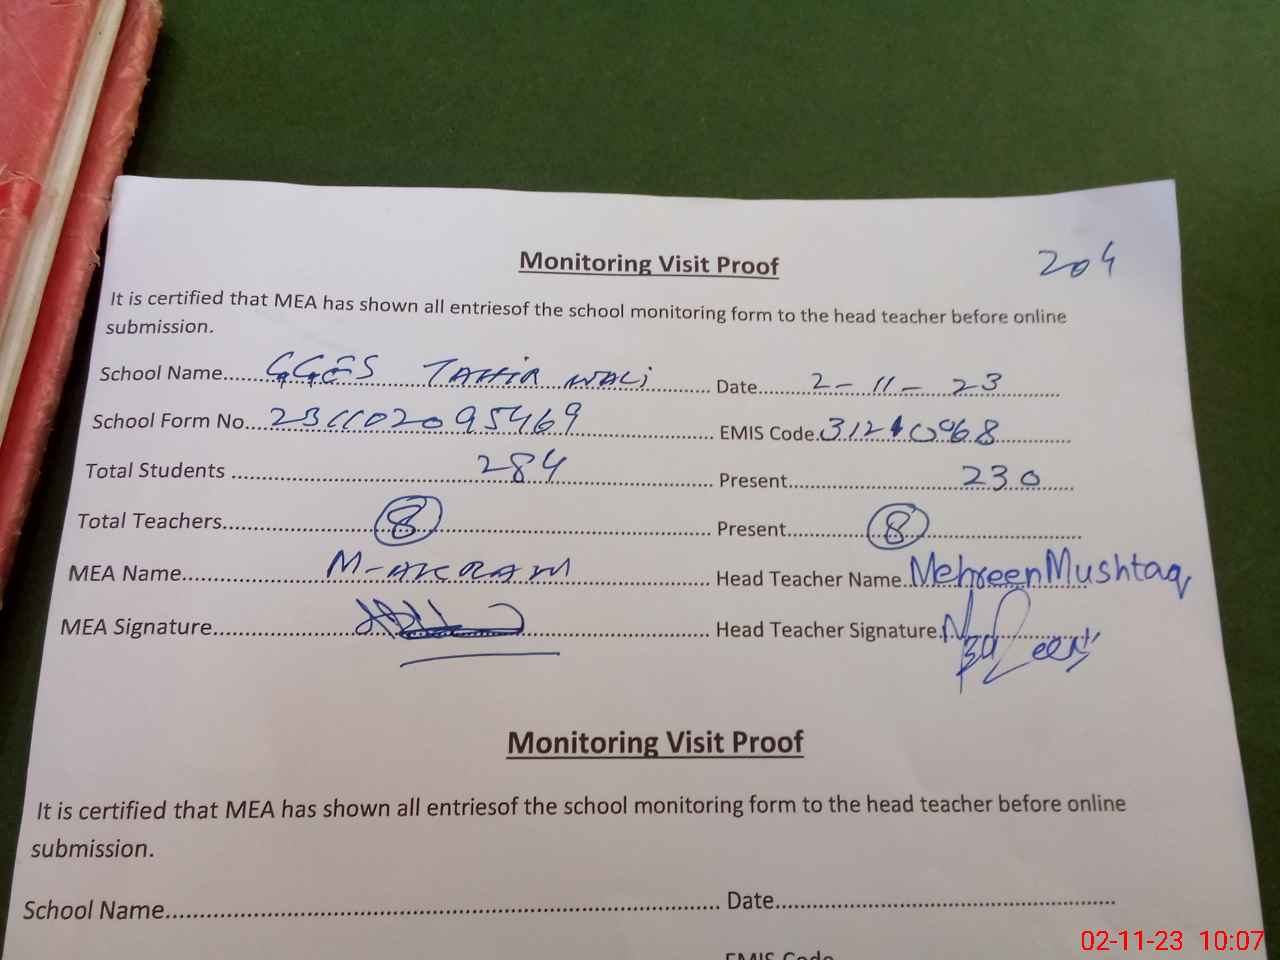 Monitoring Visit Proof
204
It is certified that MEA has shown all entriesof the school monitoring form to the head teacher before online
submission.
School Name GGES TAHIR WALI Date 2-11-23
School Form No 231102095469 EMIS Code
Total Students 284 Present 230
Total Teachers 8 Present 8
MEA Name M-AKRAM Head Teacher Name Mehreen Mushtaq
MEA Signature Head Teacher Signature
Monitoring Visit Proof
It is certified that MEA has shown all entriesof the school monitoring form to the head teacher before online
submission.
School Name Date
EMIS Code
02-11-23 10:07